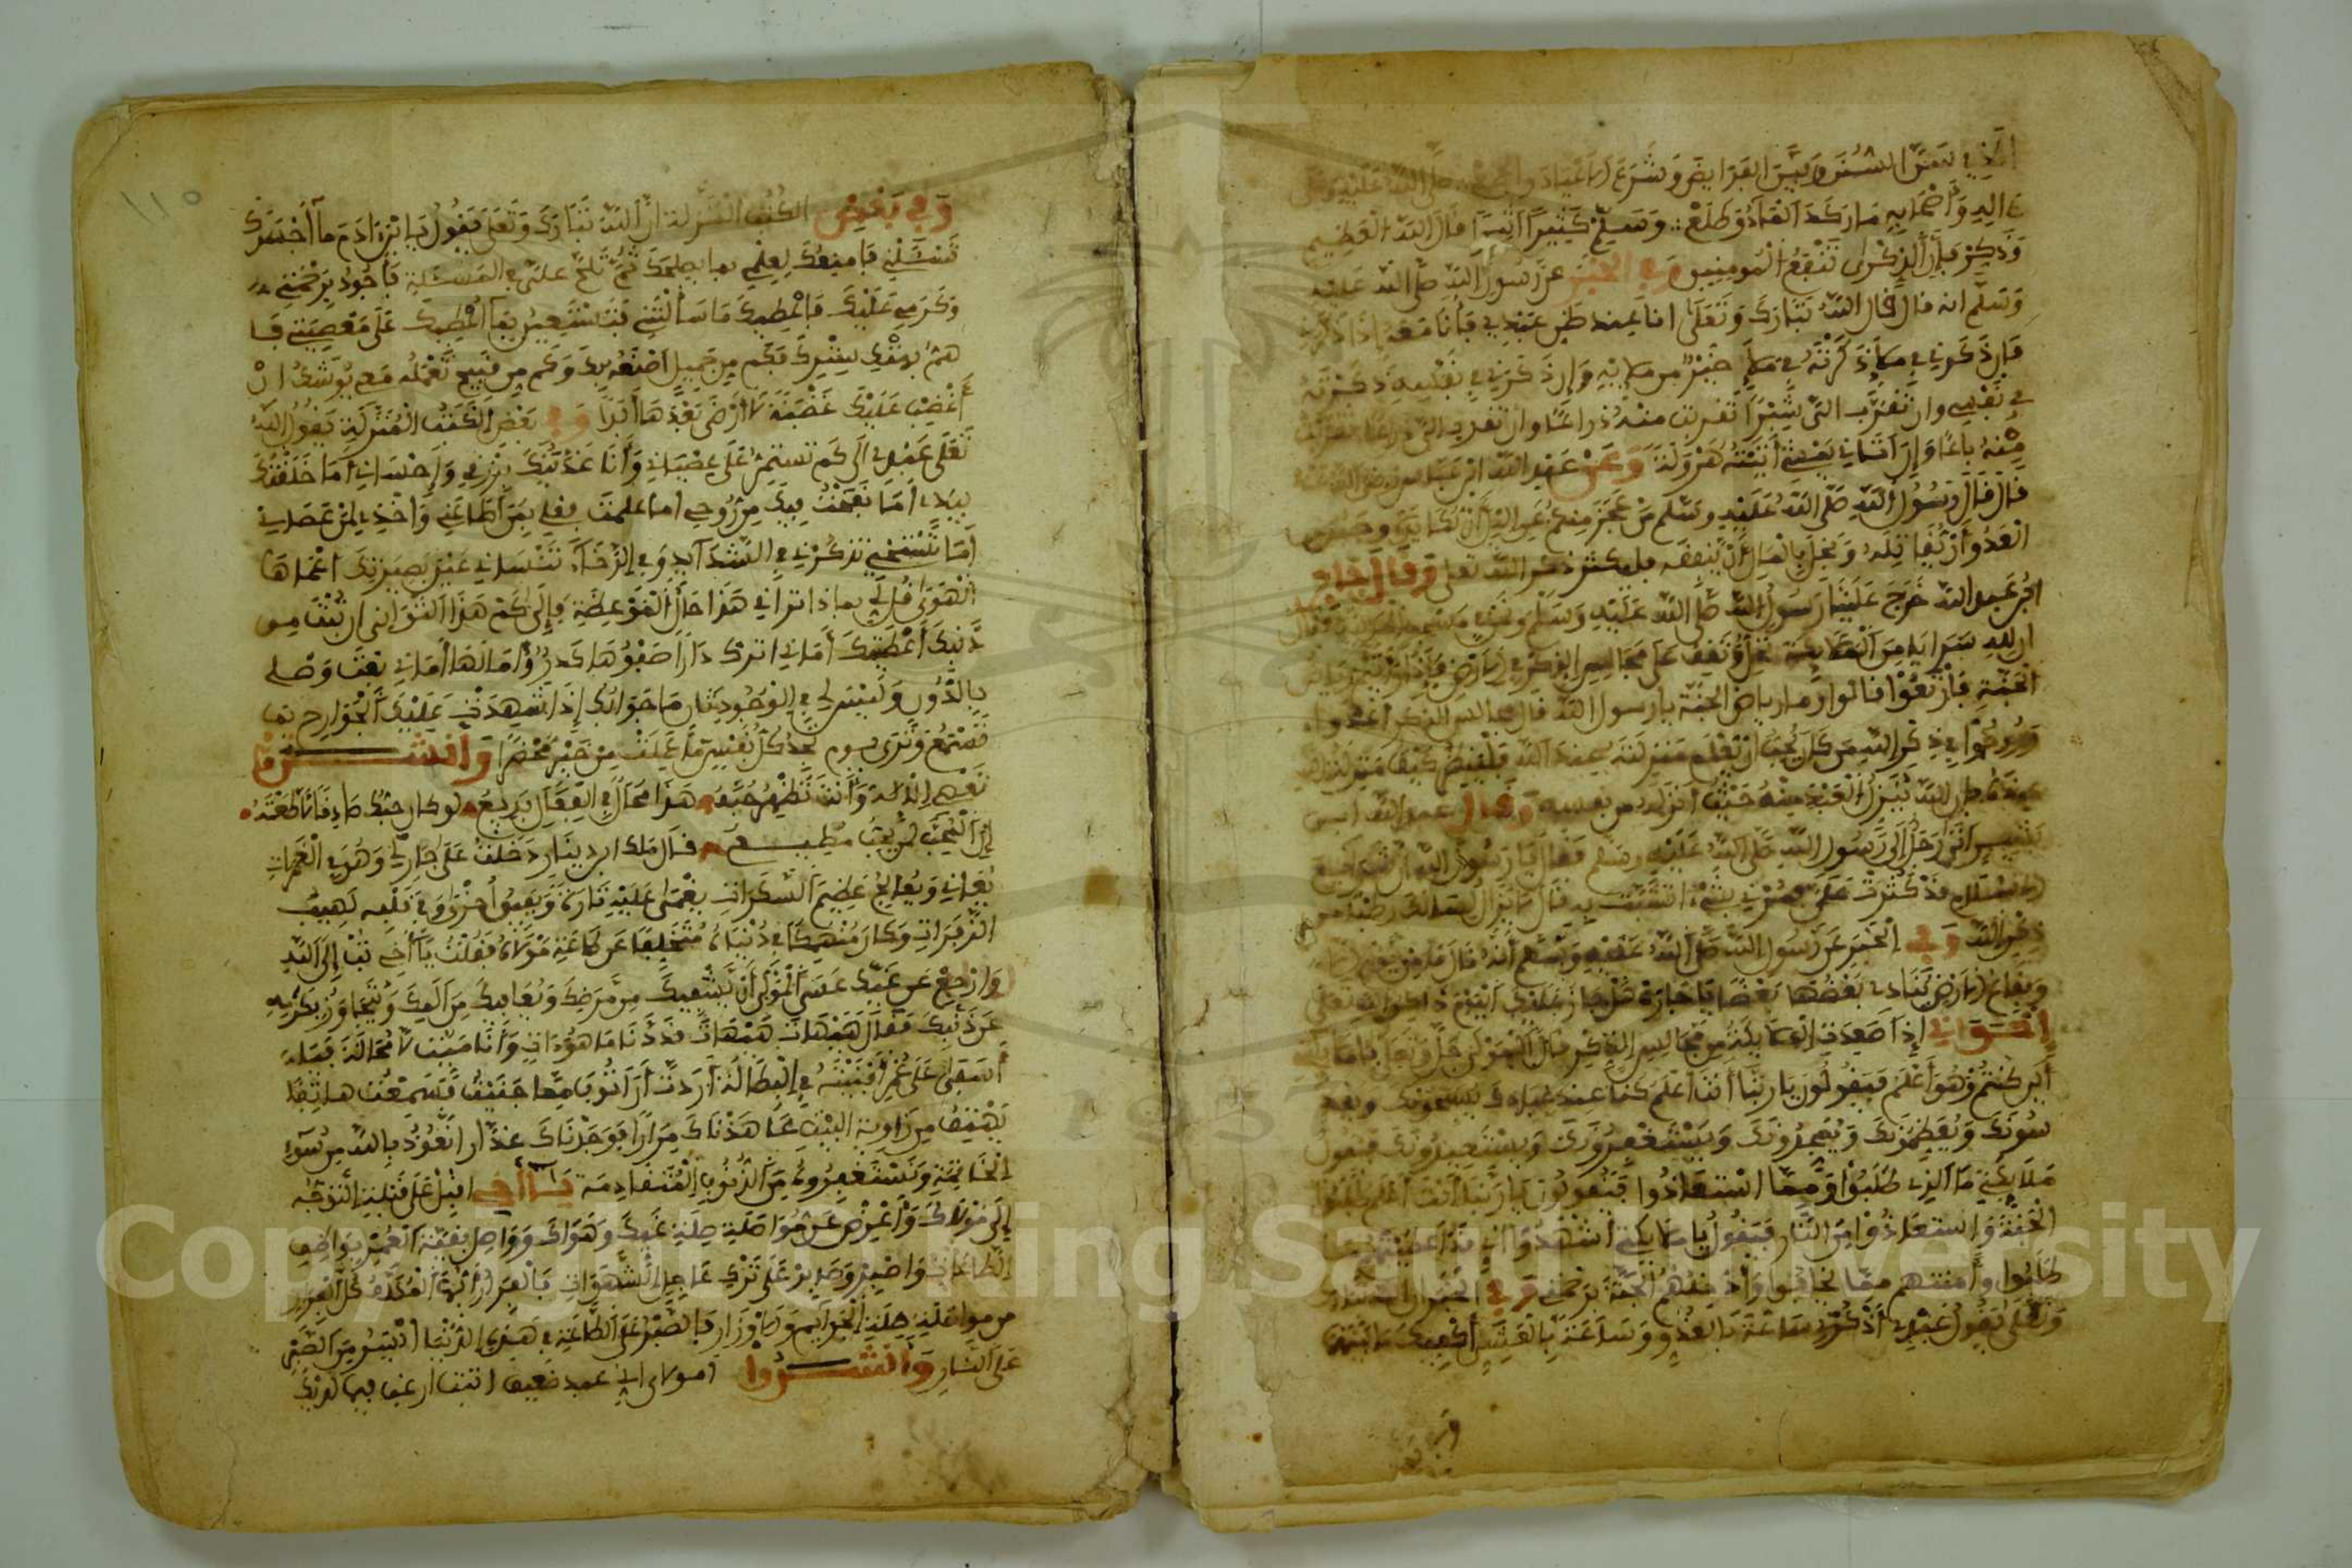 الذي سن السنن وبين الفرايض وشرع الاعياد والجمع صلى الله عليه وعلى
ءاله وأصحابه ما ركد القمر وطلع وسلم كثيرا قال الله العظيم
وذكر فإن الذكرى تنفع المومنين وفي الخبر عن رسول الله صلى الله عليه
وسلم انه قال قال الله تبارك وتعلى انا عند ظن عبدي بي فأنا معه إذا ذكرني
فإن ذكرني في ملإ ذكرته في ملإ خير من ملإيه وإن ذكرني في نفسه ذكرته
في نفسي وان تقرب الي شبرا تقربت منه ذراعا وان تقرب الي ذراعا تقربت
منه باعا وإن أتاني يمشي أتيته هرولة وعن عبد الله ابن عباس رضي الله عنه
قال قال رسول الله صلى الله عليه وسلم من عجز منكم عن الليل أن يكابده وجبن عن
العدو أن يقاتله وبخل بالمال أن ينفقه فليكثر ذكر الله تعلى وقال جابر
ابن عبد الله خرج علينا رسول الله صلى الله عليه وسلم فقال
ان لله سرايا من الملايكة تحل وتقف على مجالس الذكر في الارض فإذا رأيتم رياض
الجنة فارتعوا قالوا وما رياض الجنة يا رسول الله قال مجالس الذكر اغدوا
وروحوا في ذكر الله من كان يحب أن يعلم منزلته عند الله فلينظر كيف منزلة الله
عنده فإن الله ينزل العبد منه حيث أنزله من نفسه وقال عبد الله ابن
بسر أتى رجل إلى رسول الله صلى الله عليه وسلم فقال يا رسول الله ان شرايع
الاسلام قد كثرت علي فمرني بشيء اتشبث به قال لا يزال لسانك رطبا من
ذكر الله وفي الخبر عن رسول الله صلى الله عليه وسلم أنه قال ما من يوم الا
وبقاع الارض ينادي بعضها بعضا يا جارة هل جاز عليك اليوم ذاكر الله تعلى
إخواني إذا صعدت الملايكة من مجالس الذكر قال المولى جل وعلا يا ملايكتي
أين كنتم وهو أعلم فيقولون يا ربنا أنت أعلم كنا عند عبادك يسبحونك ويقد
سونك ويعظمونك ويمجدونك ويستغفرونك ويستعيذونك فيقول
ملايكتي ما الذي طلبوا ومما استعاذوا فيقولون يا ربنا أنت أعلم طلبوا
الجنة واستعاذوا من النار فيقول يا ملايكتي اشهدوا اني قد أعطيتهم ما
طلبوا وأمنتهم مما يخافوا وأدخلتهم الجنة برحمتي وفي الخبر ان الله تبارك
وتعلى يقول عبدي أذكرني ساعة بالغدو وساعة بالعشي أكفيك ما بينهما
وفي بعض
وفي بعض الكتب المنزلة ان الله تبارك وتعلى يقول يا ابن ادم ما أجسرك
تسئلني فامنعك لعلمي بما يصلحك ثم تلح علي في المسئلة فأجود برحمتي
وكرمي عليك فاعطيك ما سألتني فتستعين بما أعطيك على معصيتي فا
هم بهتك سترك فكم من جميل اصنعه بك وكم من قبيح تعمله معي يوشك ان
أغضب عليك غضبة لا أرضى بعدها أبدا وفي بعض الكتب المنزلة يقول الله
تعلى عبدي الى كم تستمر على عصياني وأنا غذيتك برزقي وإحساني أما خلقتك
بيدي أما نفخت فيك من روحي اما علمت فعلي بمن أطاعني وأخذي لمن عصاني
أما تستحي تذكرني في الشدايد وفي الرخاء تنساني عين بصيرتك أعماها
الهوى قل لي بماذا تراني هذا حال الموعظة فإلى كم هذا التواني ان تبت من
ذنبك أعطيتك أماني اترك دارا صفوها كدر وأمانها أماني بعت وصلي
بالدون وليس لي في الوجود ثاني ما جوابك إذا شهدت عليك الجوارح بما
تسمع وترى يوم تجد كل نفس ما عملت من خير محضرا وأنشدوا
تعصي الإله وأنت تظهر حبه هذا محال في الفعال بديع لو كان حبك صادقا لأطعته
إن المحب لمن يحب مطيع قال ملك ابن دينار دخلت على جار لي وهو في الغمرات
يعاني ويعالج عظيم السكرات يغمى عليه تارة ويفيق أخرى وفي قلبه لهيب
الزفرات وكان منهمكا في دنياه متخلفا عن طاعة مولاه فقلت يا أخي تب إلى الله
وارجع عن غيك عسى المولى أن يشفيك من مرضك ويعافيك من ألمك ويتجاوز بكرمه
عن ذنبك فقال هيهات هيهات قد دنا ما هو ءات وأنا ميت لا محالة فيا
أسفى على عمر أفنيته في البطالة أردت أن أتوب مما جنيت فسمعت هاتفا
يهتف من زاوية البيت عاهدناك مرارا فوجدناك غدارا نعوذ بالله من سوء
الخاتمة ونستغفره من الذنوب المتقادمة يا أخي اقبل على قبلة التوجه
إلى مولاك وأعرض عن مواصلة غيك وهواك وواصل بقية العمر بوظايف
الطاعات واصبر وصابر على ترك عاجل الشهوات فالفرار أيها المكلف كل الفرار
من مواصلة الجرايم والاوزار فالصبر على الطاعة في هذه الدنيا أيسر من الصبر
على النار وأنشدوا امولاي اني عبد ضعيف اتيتك ارغب فيما لديك